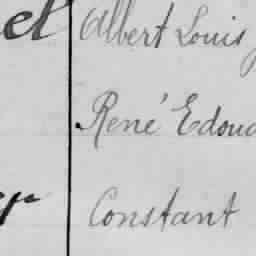 el Albert Louis
René Edoua
Constant